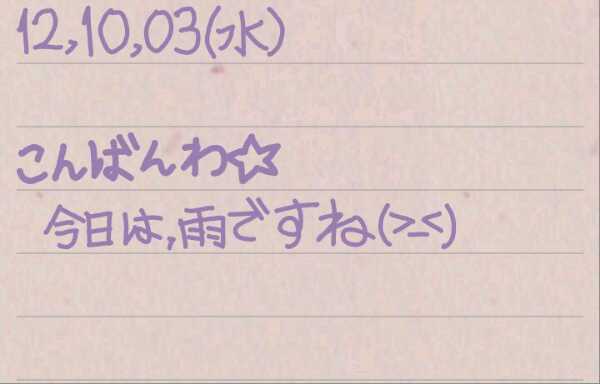 12,10,03(水)
こんばんわ☆
今日は,雨ですね(>_<)